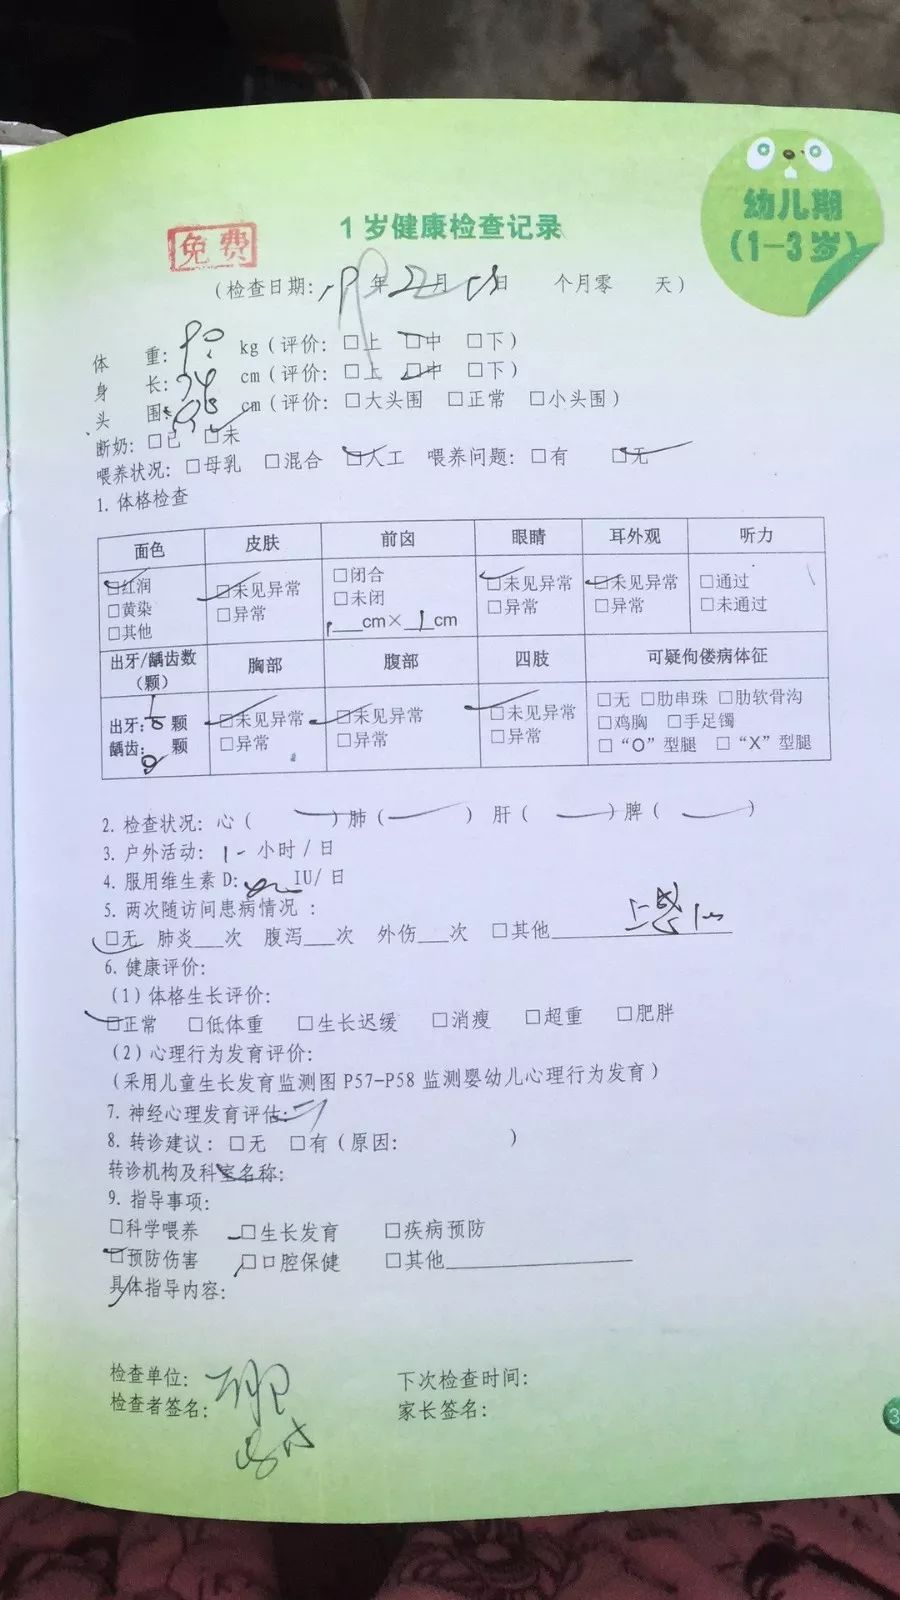 幼儿期
(1-3岁)
免费
1岁健康检查记录
(检查日期: 年 月 日 个月零 天)
体 重: kg(评价: □上 □中 □下)
身 长: cm(评价: □上 □中 □下)
头 围: cm(评价: □大头围 □正常 □小头围)
断奶: □已 □未
喂养状况: □母乳 □混合 □人工 喂养问题: □有 □无
1. 体格检查
面色 皮肤 前囟 眼睛 耳外观 听力
□红润 □未见异常 □闭合 □未见异常 □未见异常 □通过
□黄染 □异常 □未闭 □异常 □异常 □未通过
□其他 1 cm× 1 cm
出牙/龋齿数 胸部 腹部 四肢 可疑佝偻病体征
(颗)
出牙: 颗 □未见异常 □未见异常 □未见异常 □无 □肋串珠 □肋软骨沟
龋齿: 颗 □异常 □异常 □异常 □鸡胸 □手足镯
□“O”型腿 □“X”型腿
2. 检查状况: 心( )肺( ) 肝( )脾( )
3. 户外活动: 1- 小时/日
4. 服用维生素D: IU/日
5. 两次随访间患病情况 :
□无 肺炎___次 腹泻___次 外伤___次 □其他 上感
6. 健康评价:
(1)体格生长评价:
□正常 □低体重 □生长迟缓 □消瘦 □超重 □肥胖
(2)心理行为发育评价:
(采用儿童生长发育监测图P57-P58监测婴幼儿心理行为发育)
7. 神经心理发育评估:
8. 转诊建议: □无 □有(原因: )
转诊机构及科室名称:
9. 指导事项:
□科学喂养 □生长发育 □疾病预防
□预防伤害 □口腔保健 □其他
具体指导内容:
检查单位: 下次检查时间:
检查者签名: 家长签名:
3